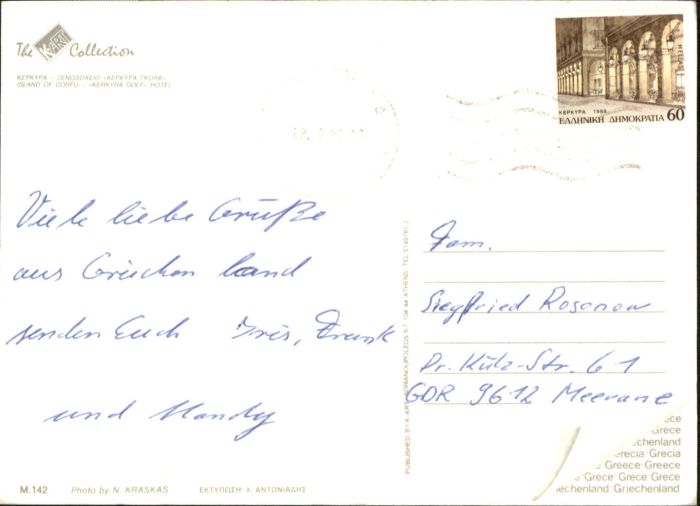 The K.ART Collection
ΚΕΡΚΥΡΑ - ΞΕΝΟΔΟΧΕΙΟ «ΚΕΡΚΥΡΑ ΓΚΟΛΦ»
ISLAND OF CORFU - «KERKYRA GOLF» HOTEL
ΕΛΛΑΣ HELLAS
ΚΕΡΚΥΡΑ 1988
ΕΛΛΗΝΙΚΗ ΔΗΜΟΚΡΑΤΙΑ 60
Viele liebe Grüße
aus Griechenland
senden Euch Iris, Frank
und Mandy
Fam.
Siegfried Rosenow
Dr. Külz-Str. 61
GDR 9612 Meerane
PUBLISHED BY K.ART
ece
Grece
chenland
erecia Grecia
Greece Greece
Grece Grece Grece
iechenland Griechenland
M.142 Photo by N. KRASKAS ΕΚΤΥΠΩΣΗ: Χ. ΑΝΤΟΝΙΑΔΗΣ